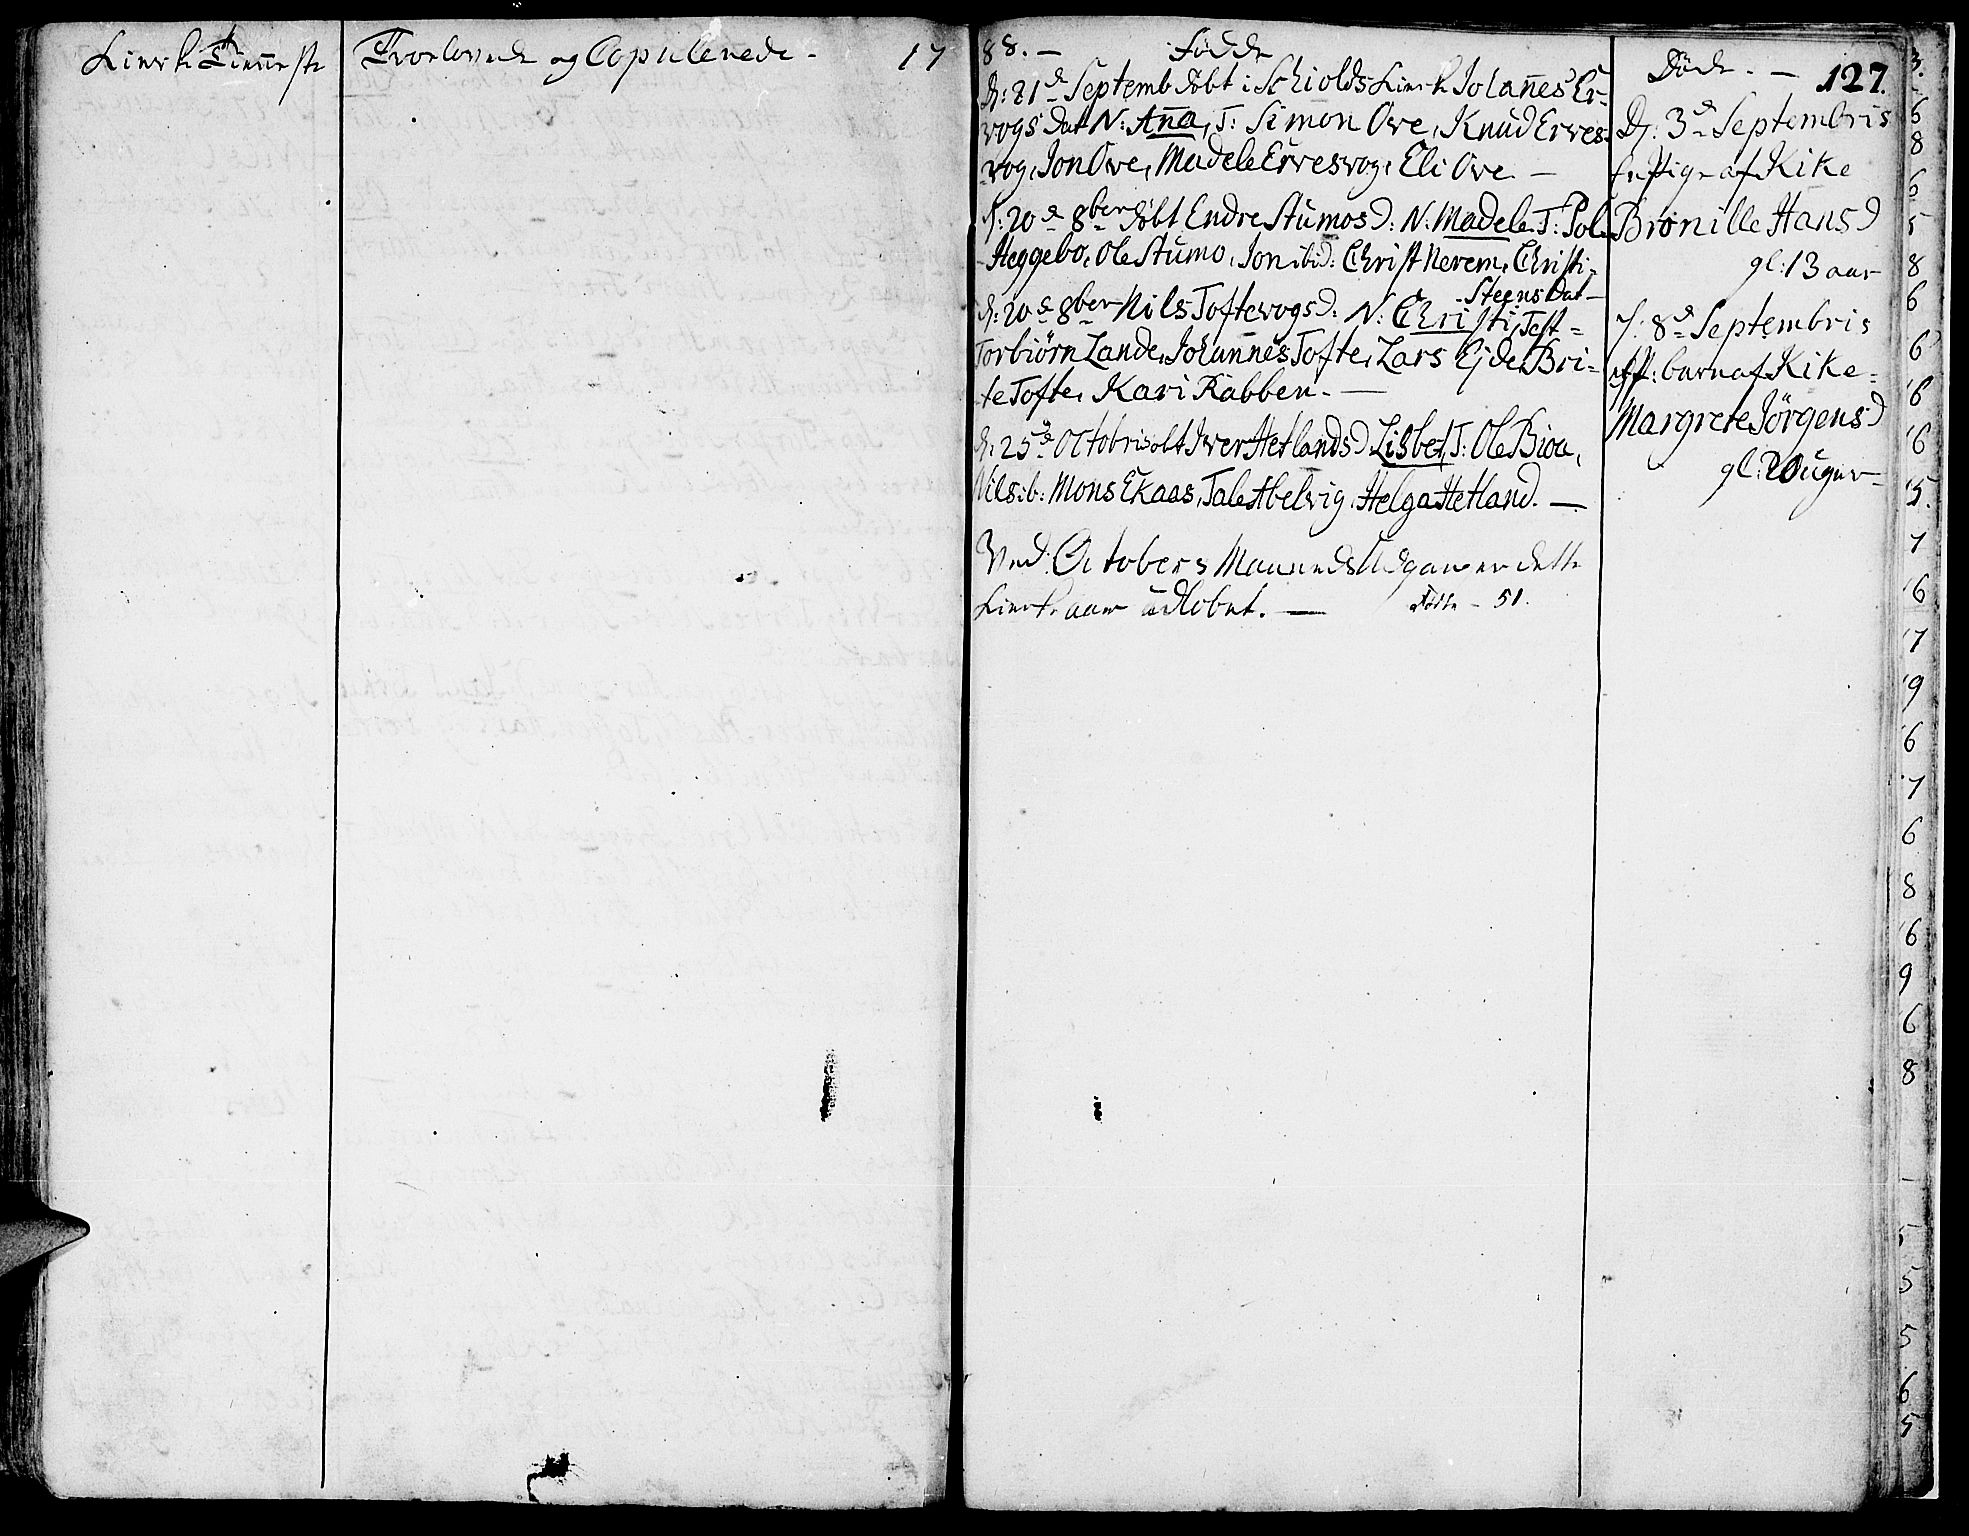 Kirke Tieneste
Trolovede og Copulerede - 17
88. - Fødde
D: 21de Septemb døbt i Schiolds Kirke Johannes Er-
vogs Dat N: Ana, T: Simon Ove, Knud Erves-
vog, Jon Ove, Madele Ervesvog, Eli Ove -
D: 20de 8ber døbt Endre Stumos D: N: Madele T: Pol
Heggebo, Ole Stumo, Jon ibid: Christ Nerem, Christi
Steens Dat -
D: 20de 8ber Nils Toftevogs D: N: Christi, Test=
Torbiørn Lande, Johannes Tofte, Lars Ejde, Bri-
te Tofte, Kari Rabben. -
D: 25de Octobris Iver Hetlands D Lisbet, T: Ole Bioa,
Nils ib: Mons Ekaas, Tale Abelvig, Helga Hetland. -
Ved Octobers Maaneds Udgang er dette
Kirke aar udløbet. - Fødte - 51.
Døde. - 127.
D: 3de Septembris
en Pige af Kike
Bronille Hans D
gl: 13 aar
D: 8de Septembris
barn af Kike
Margrete Jörgens D
gl: 20 uger
3.
6
8
6
5
8
6
6
6
6
5.
7
6
7
9
6
7
6
8
6
9
6
8
-
5
5
5
6
5